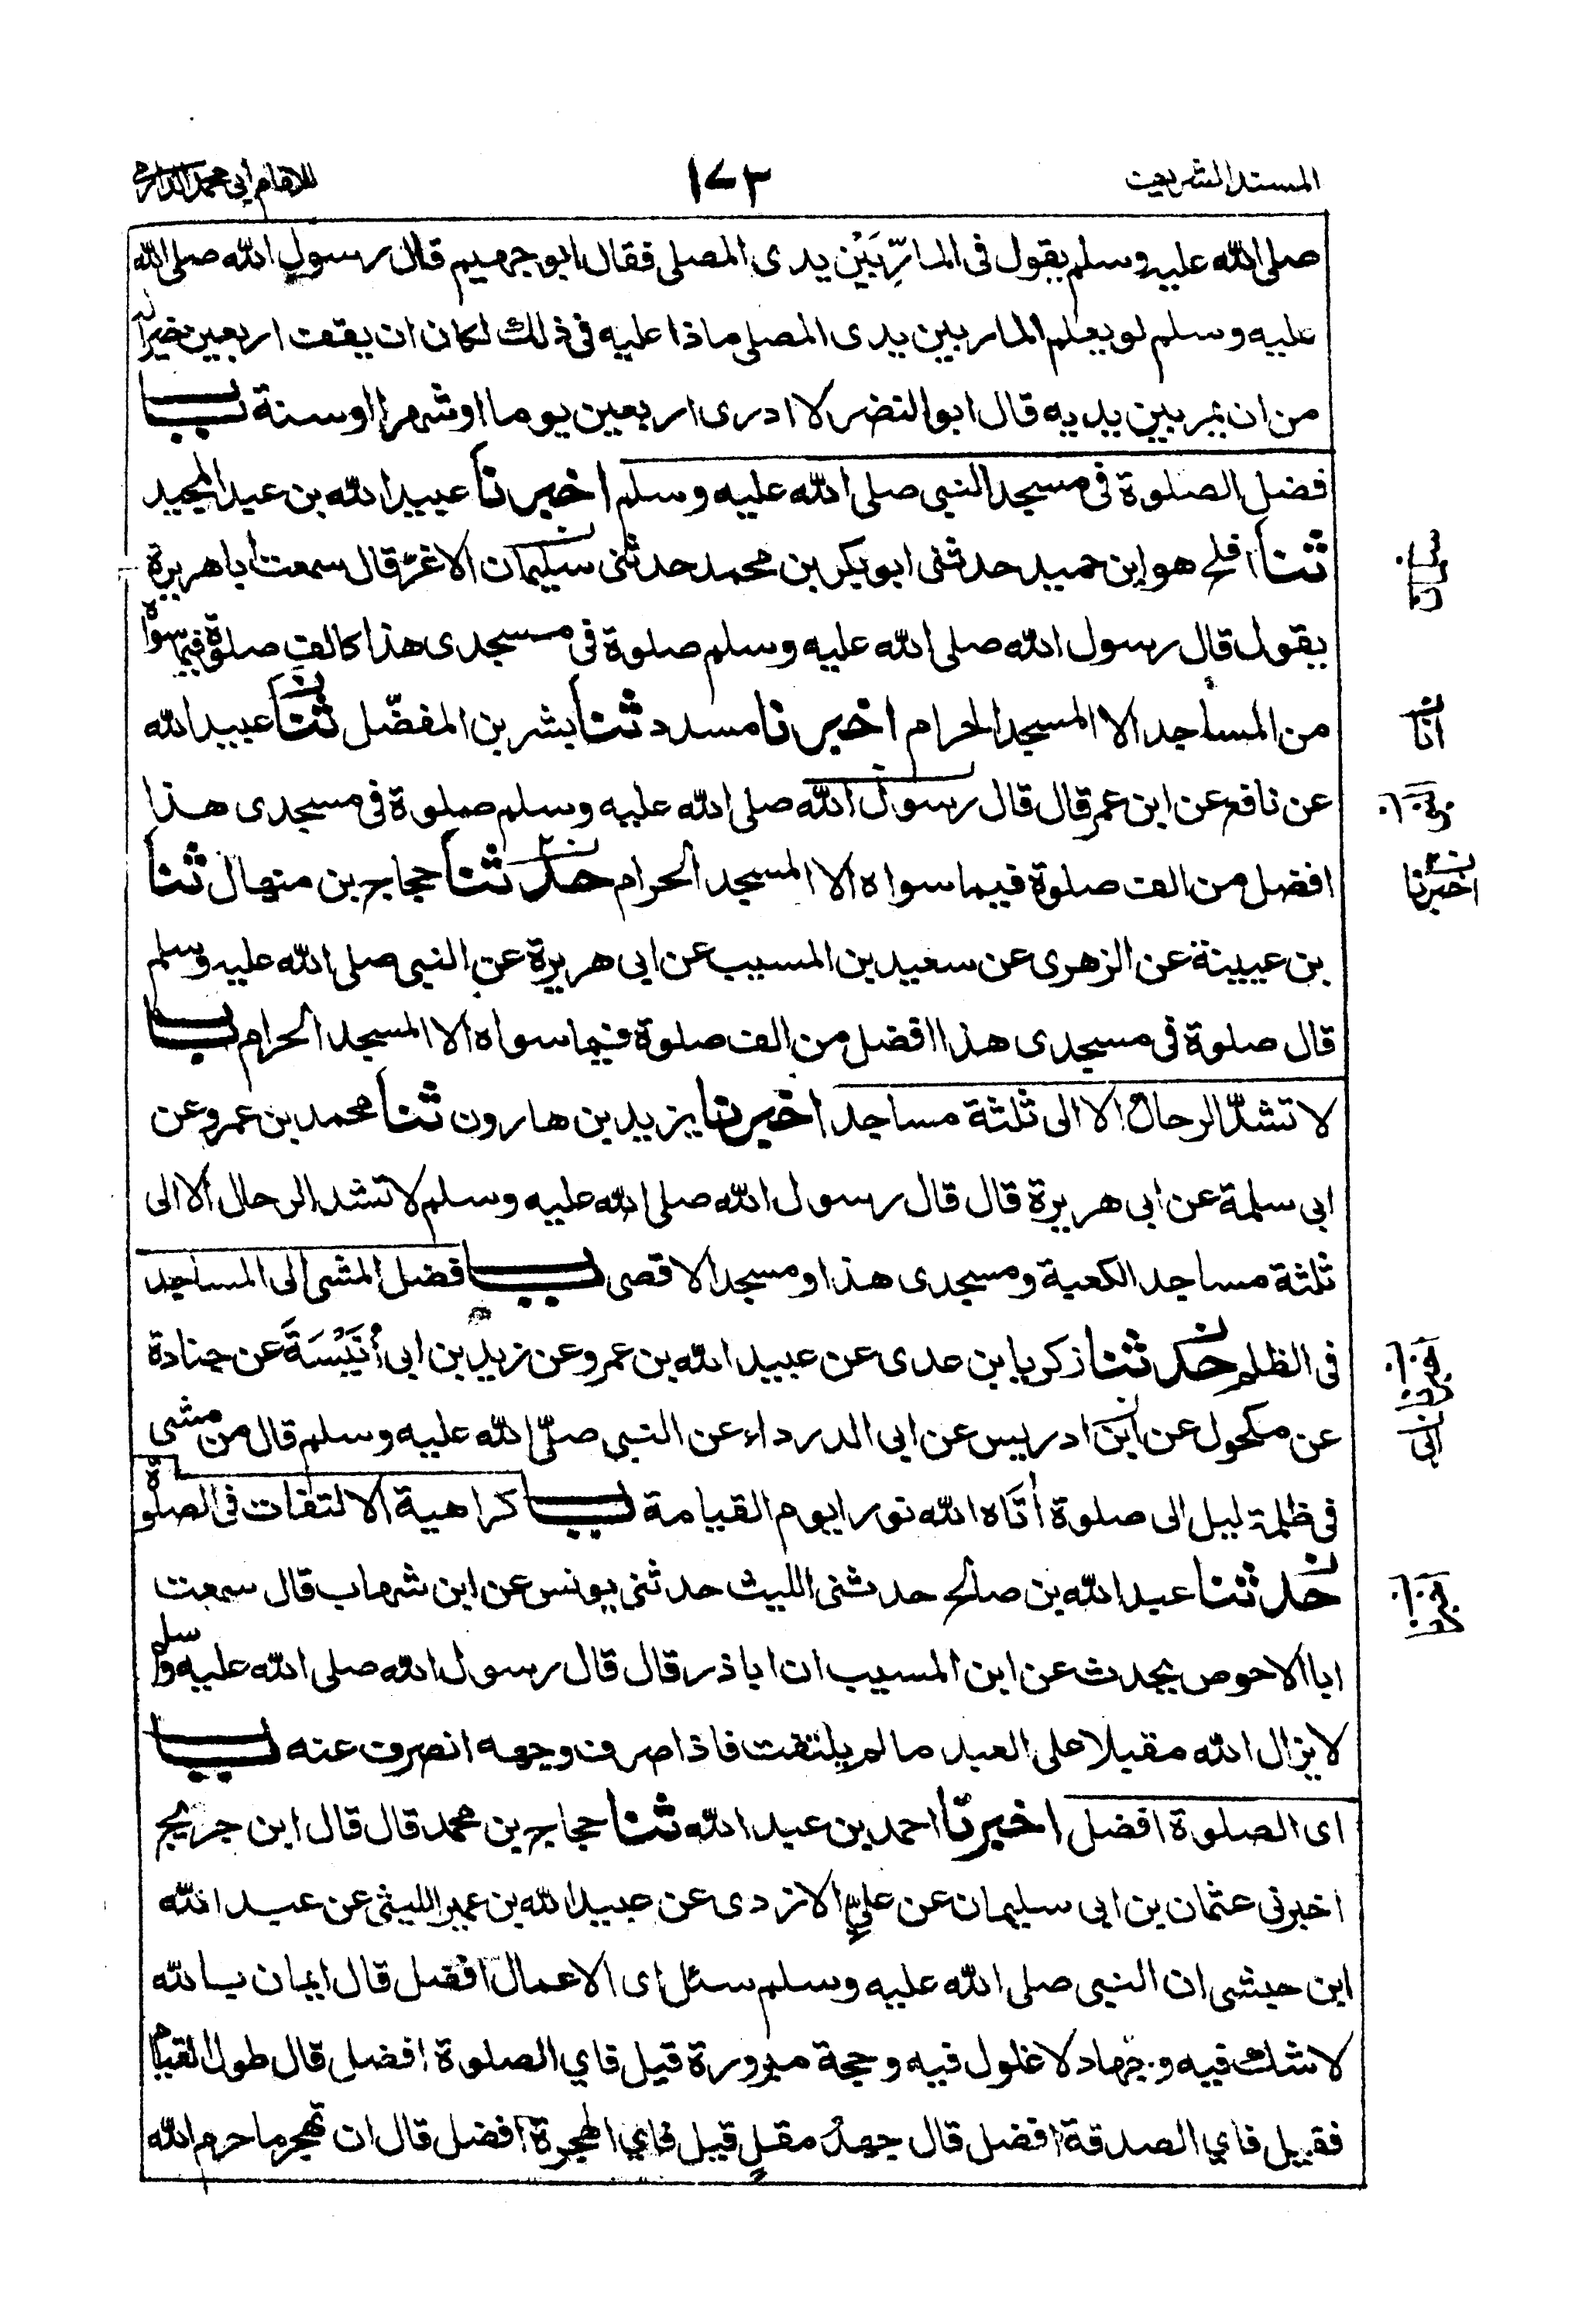 المسند الشريف
١٧٣
للامام ابي محمد الدارمي
صلى الله عليه وسلم يقول فى المارِّ بَيْن يدى المصلى فقال ابو جهيم قال رسول الله صلى الله
عليه وسلم لو يعلم المار بين يدى المصلى ماذا عليه فى ذلك لكان ان يقف اربعين خيرا له
من ان يمر بين يديه قال ابو النضر لا ادرى اربعين يوما او شهرا او سنة باب
فضل الصلوة فى مسجد النبى صلى الله عليه وسلم اخبرنا عبيد الله بن عبد المجيد
ثنا افلح هو ابن حميد حدثنى ابو بكر بن محمد حدثنى سليمان الاغرّ قال سمعت ابا هريرة
يقول قال رسول الله صلى الله عليه وسلم صلوة فى مسجدى هذا كالف صلوة فيما سواه
من المساجد الا المسجد الحرام اخبرنا مسدد ثنا بشر بن المفضّل ثنا عبيد الله
عن نافع عن ابن عمر قال قال رسول الله صلى الله عليه وسلم صلوة فى مسجدى هذا
افضل من الف صلوة فيما سواه الا المسجد الحرام حدثنا حجاج بن منهال ثنا
بن عيينة عن الزهرى عن سعيد بن المسيب عن ابى هريرة عن النبى صلى الله عليه وسلم
قال صلوة فى مسجدى هذا افضل من الف صلوة فيما سواه الا المسجد الحرام باب
لا تشدّ الرحال الا الى ثلثة مساجد اخبرنا يزيد بن هارون ثنا محمد بن عمرو عن
ابى سلمة عن ابى هريرة قال قال رسول الله صلى الله عليه وسلم لا تشد الرحال الا الى
ثلثة مساجد الكعبة ومسجدى هذا ومسجد الاقصى باب فضل المشى الى المساجد
فى الظلم حدثنا زكريا بن عدى عن عبيد الله بن عمرو عن زيد بن ابى أُنَيْسَةَ عن جنادة
عن مكحول عن ابن ادريس عن ابى الدرداء عن النبى صلّى الله عليه وسلم قال من مشى
فى ظلمة ليل الى صلوة أتَاه الله نورا يوم القيامة باب كراهية الالتفات فى الصلوة
حدثنا عبد الله بن صالح حدثنى الليث حدثنى يونس عن ابن شهاب قال سمعت
ابا الاحوص يحدث عن ابن المسيب ان ابا ذر قال قال رسول الله صلى الله عليه وسلم
لا يزال الله مقبلا على العبد ما لم يلتفت فاذا صرف وجهه انصرف عنه باب
اى الصلوة افضل اخبرنا احمد بن عبد الله ثنا حجاج بن محمد قال قال ابن جريج
اخبرنى عثمان بن ابى سليمان عن عليٍّ الازدى عن عبيد الله بن عمير الليثى عن عبد الله
ابن حبشى ان النبى صلى الله عليه وسلم سئل اى الاعمال افضل قال ايمان بالله
لا شك فيه وجهاد لا غلول فيه وحجة مبرورة قيل فاي الصلوة افضل قال طول القيام
فقيل فاي الصدقة افضل قال جهدُ مقلٍ قيل فاي الهجرة افضل قال ان تهجر ما حرم الله
سلمان
انا
اخبرنا
ابى